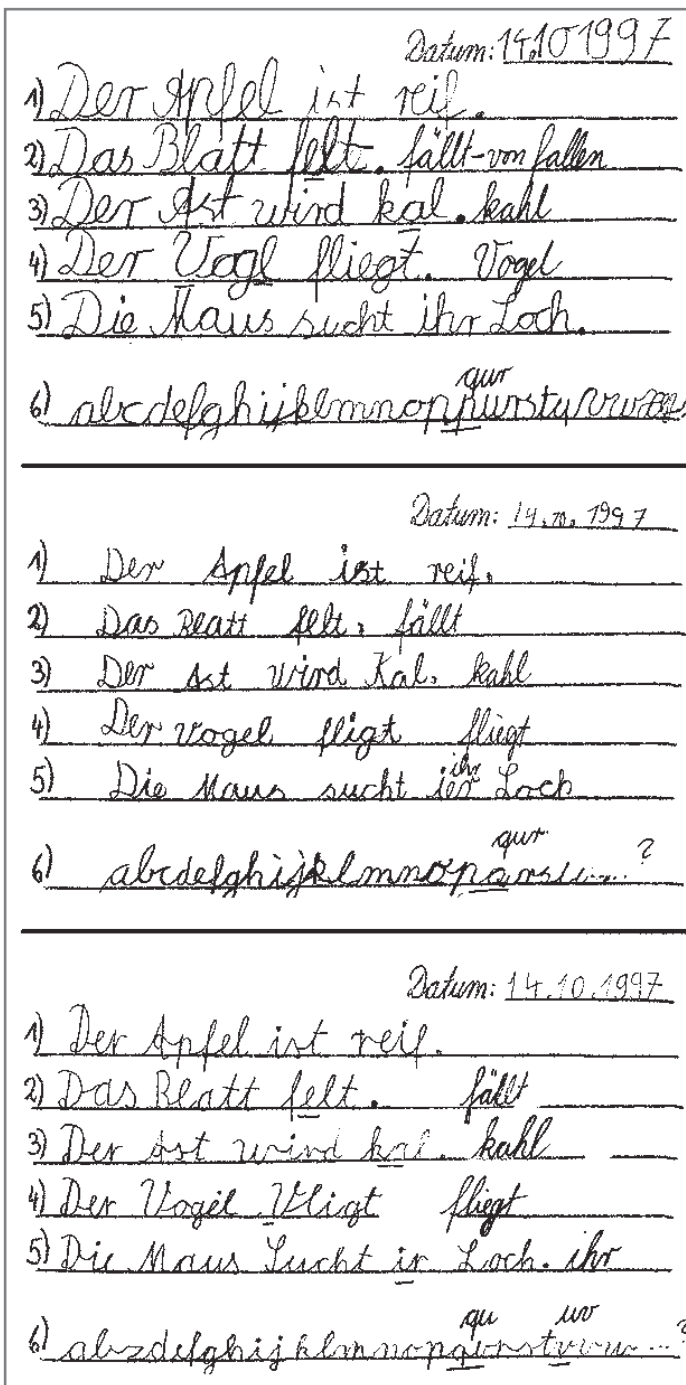 Datum: 14.10 1997
1) Der Apfel ist reif.
2) Das Blatt felt. fällt-von fallen
3) Der Ast wird kal. kahl
4) Der Vogl fliegt. Vogel
5) Die Maus sucht ihr Loch.
qur
6) abcdefghijklmnoppurstuvw
Datum: 14.10.1997
1) Der Apfel ist reif.
2) Das Blatt felt. fällt
3) Der Ast wird Kal. kahl
4) Der Vogel fligt fliegt
ihr
5) Die Maus sucht ier Loch
qur
6) abcdefghijklmnopqrsu....?
Datum: 14.10.1997
1) Der Apfel ist reif.
2) Das Blatt felt. fällt
3) Der Ast wird kal. kahl
4) Der Vogel Vligt fliegt
5) Die Maus Sucht ir Loch. ihr
qu uv
6) abzdefghijklmnopqurstvuw...?